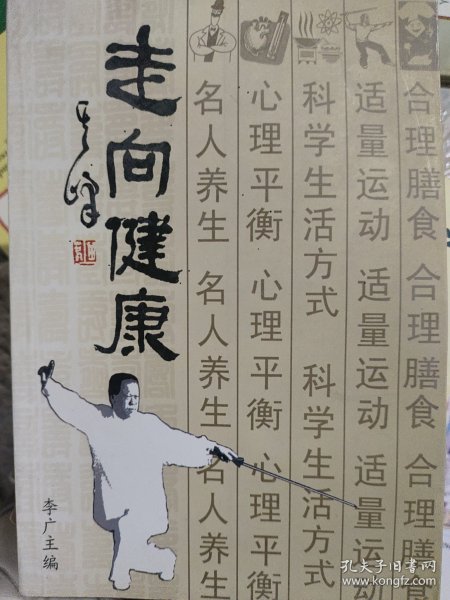 走向健康
李广主编
名人养生 名人养生 名人养生
心理平衡 心理平衡 心理平衡
科学生活方式 科学生活方式
适量运动 适量运动 适量运动
合理膳食 合理膳食 合理膳食
孔夫子旧书网
www.kongfz.com